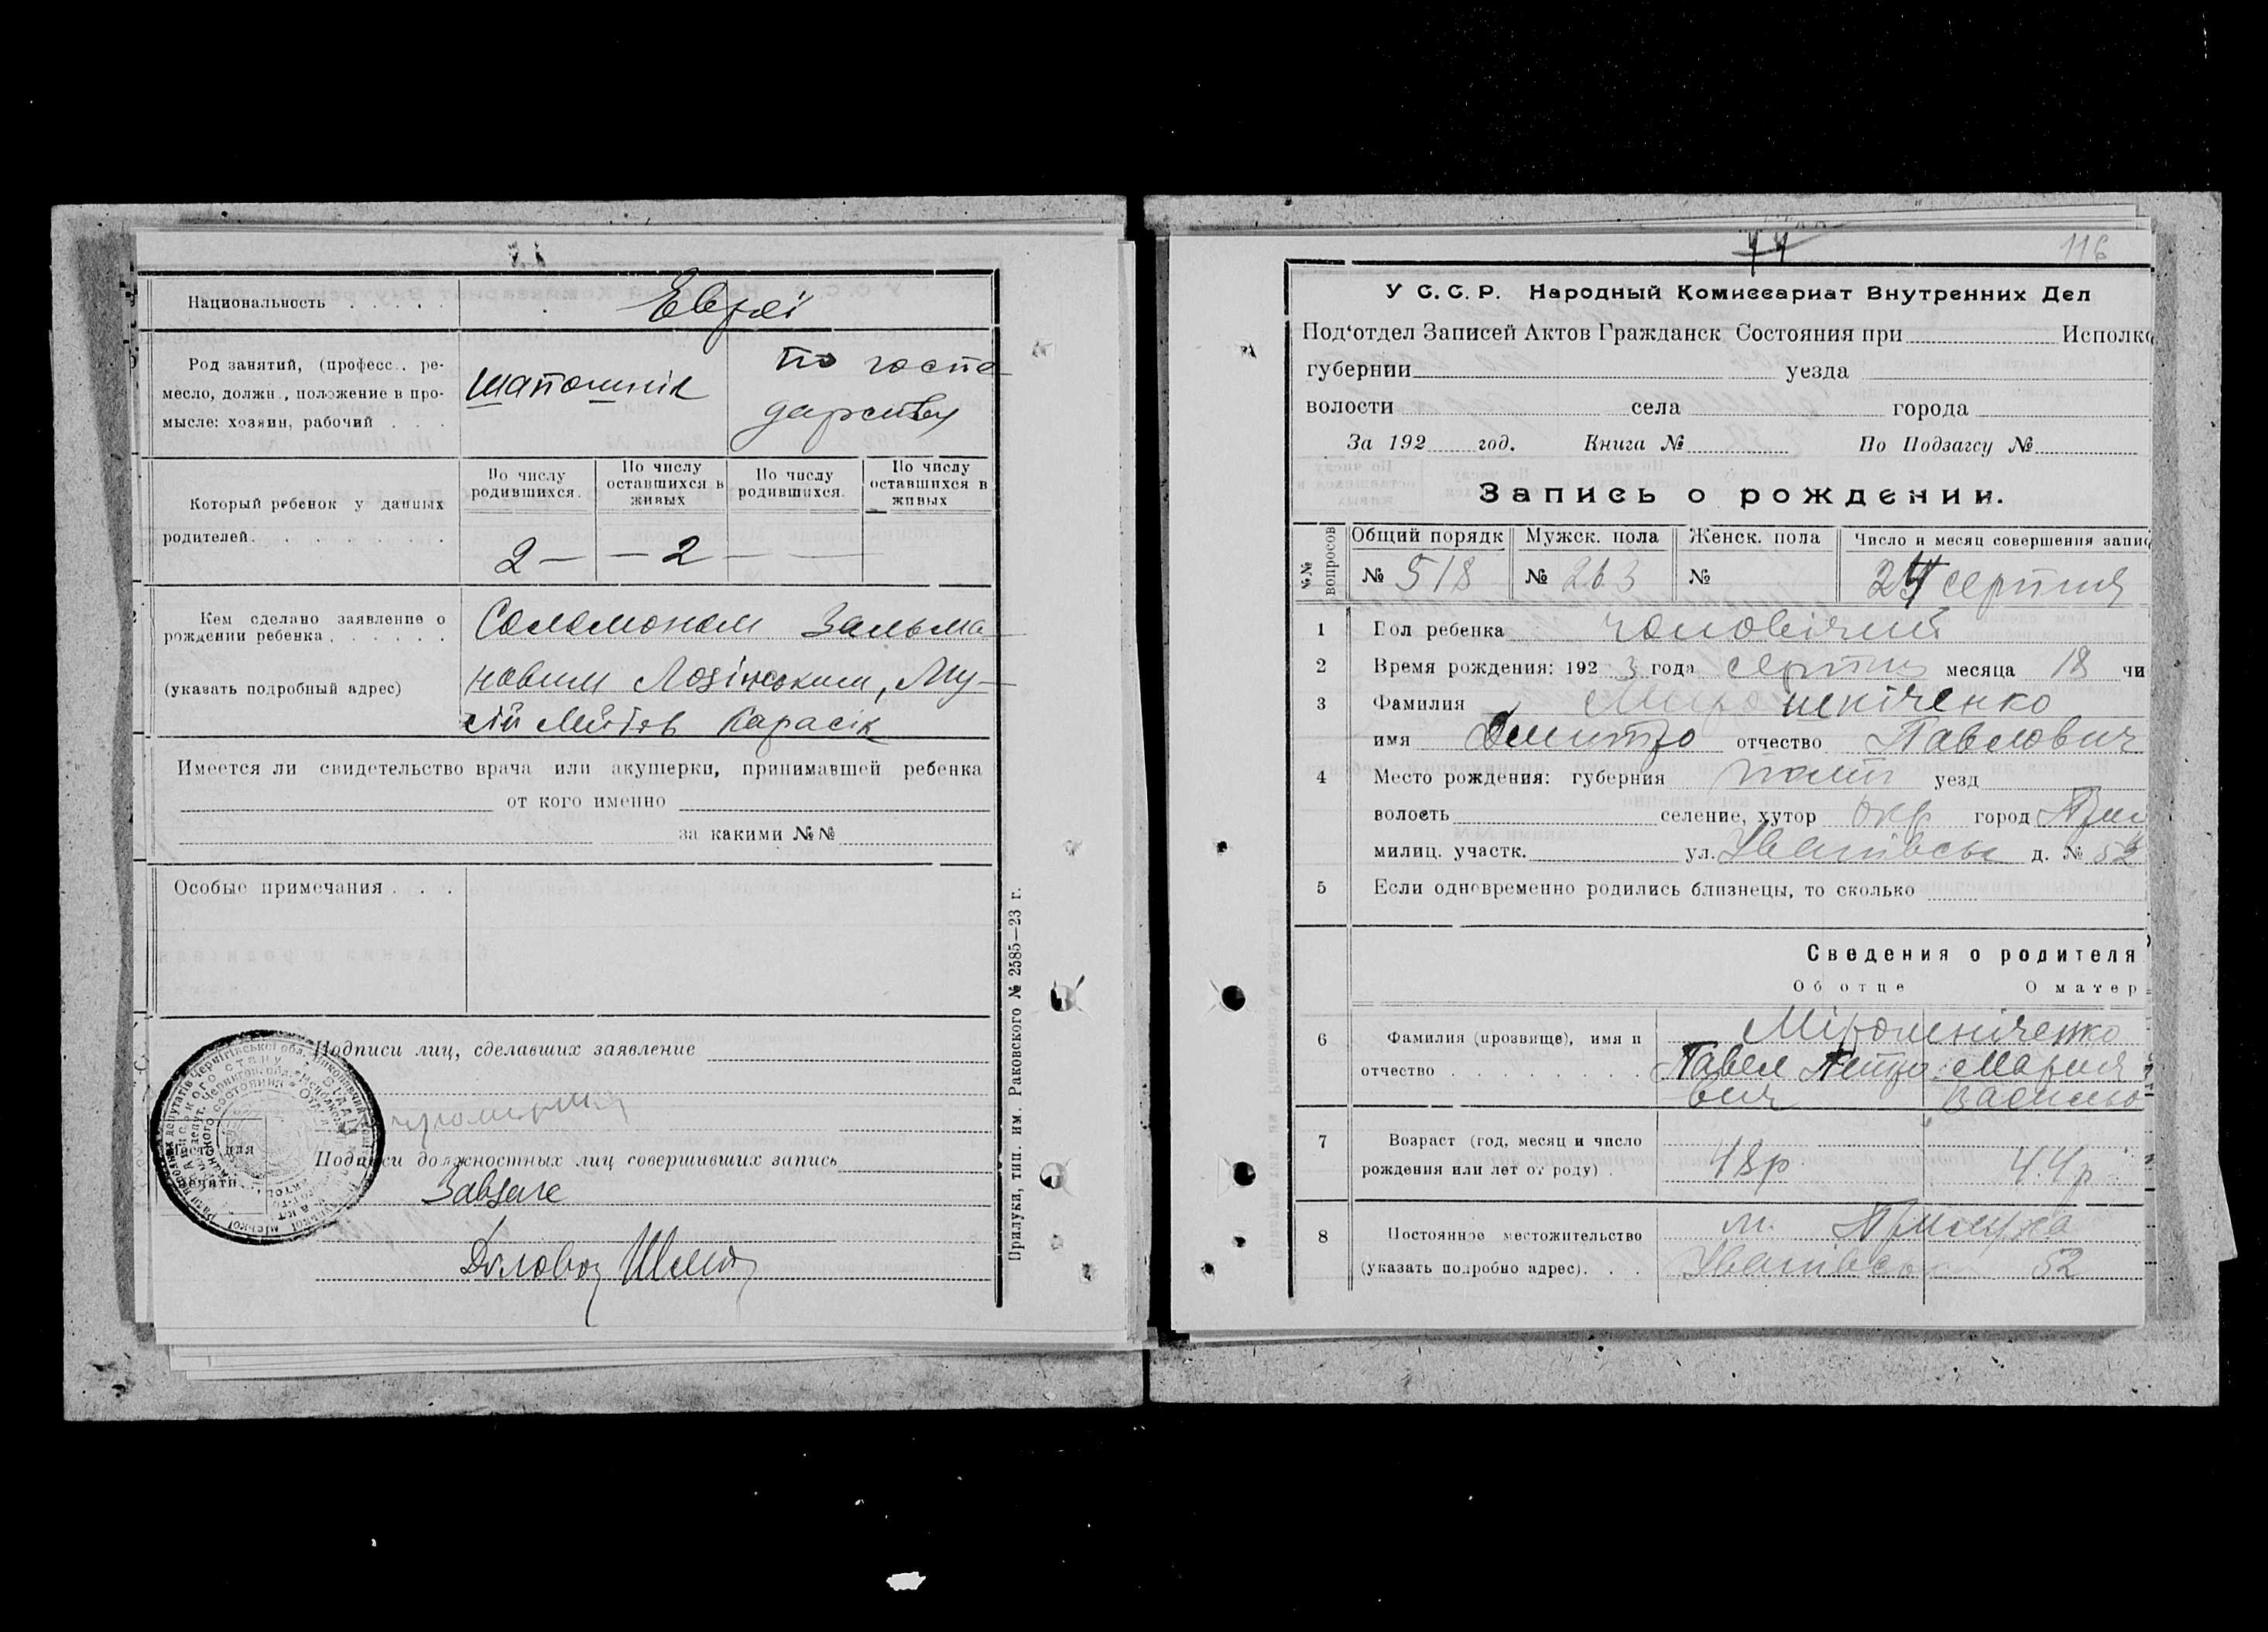 Национальность . . . . .
Евреї
Род занятий, (професс.. ре-
месло, должн., положение в про-
мысле: хозяин, рабочий . . .
шапошнік
по госпо
дарству
Который ребенок у данных
родителей. . . . . . .
По числу
родившихся.
По числу
оставшихся в
живых
По числу
родившихся.
По числу
оставшихся в
живых
2 — — 2 —
Кем сделано заявление о
рождении ребенка . . . . . .
(указать подробный адрес)
Соломоном Зальма
новим Лозінським, Му-
сій Карасік
Имеется ли свидетельство врача или акушерки, принимавшей ребенка
от кого именно
за какими №№
Особые примечания . . .
Подписи лиц, сделавших заявление
Подписи должностных лиц совершивших запись
Завзаге
Прилуки, тип. им. Раковского № 2585—23 г.
116
У С. С. Р. Народный Комиссариат Внутренних Дел
Под'отдел Записей Актов Гражданск Состояния при Исполко
губернии уезда
волости села города
За 192 год. Книга № По Подзагсу №
Запись о рождении.
№№ вопросов
Общий порядк
Мужск. пола
Женск. пола
Число и месяц совершения запис
№ 518
№ 263
№
24 серпня
1 Пол ребенка чоловічий
2 Время рождения: 192 3 года серпня месяца 18 чи
3 Фамилия Мирошніченко
имя Дмитро отчество Павлович
4 Место рождения: губерния Полт уезд
волость селение, хутор окр город Прил
милиц. участк. ул. Іванівськ д. № 52
5 Если одновременно родились близнецы, то сколько
Сведения о родителя
Об отце
О матер
6 Фамилия (прозвище), имя и
отчество . . . . . . . .
Мірошніченко
Павел Петро
вич
Мария
Василью
7 Возраст (год, месяц и число
рождения или лет от роду) .
48р
44р
8 Постоянное местожительство
(указать подробно адрес). . .
м. Прилука
Іванівська 52